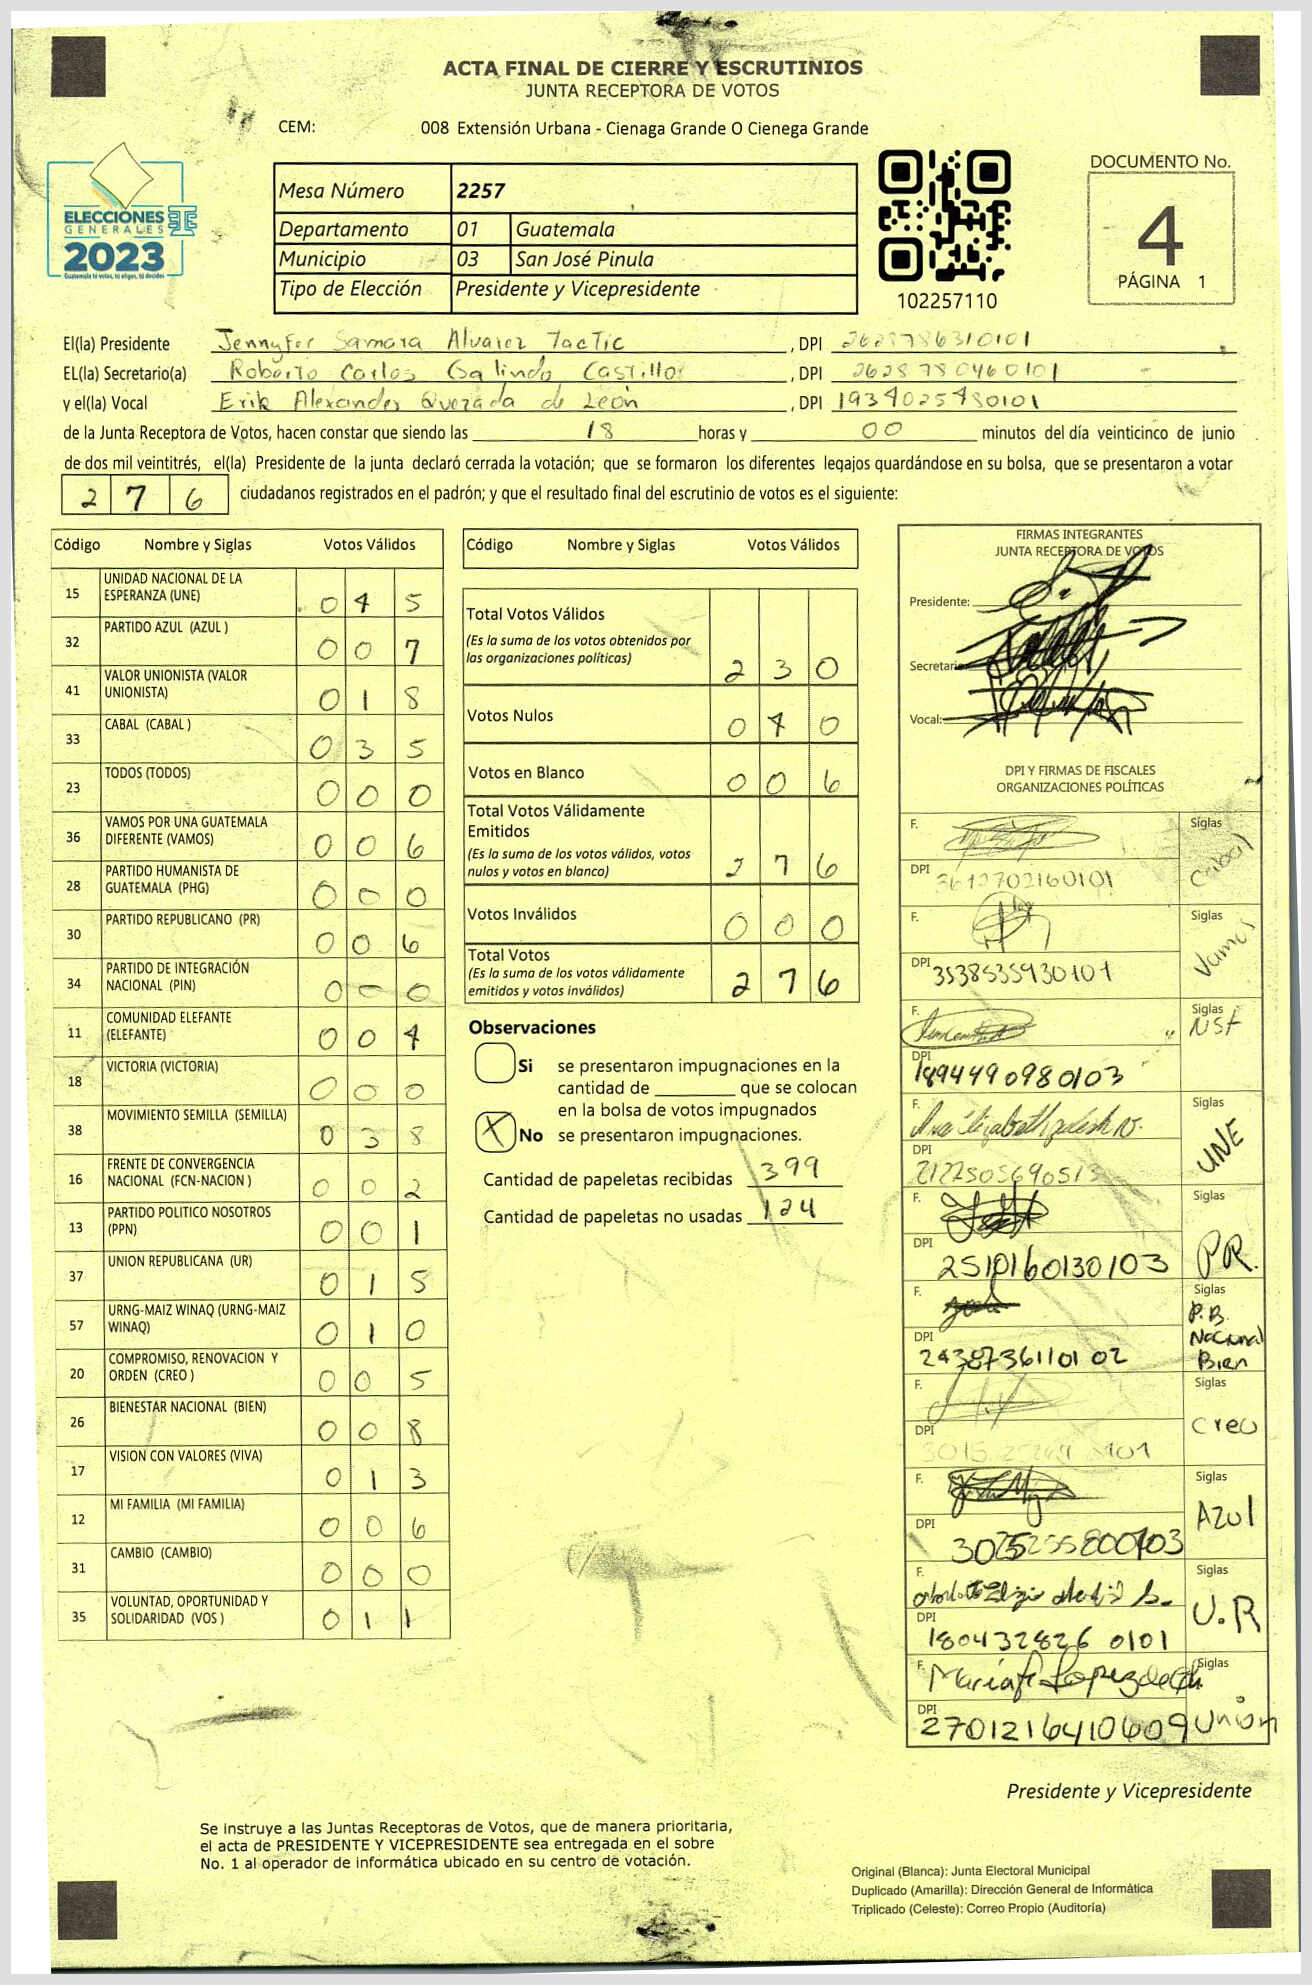 ACTA FINAL DE CIERRE Y ESCRUTINIOS
JUNTA RECEPTORA DE VOTOS
CEM: 008 Extensión Urbana - Cienaga Grande O Cienega Grande
ELECCIONES
GENERALES
2023
Guatemala tú votas, tú eliges, tú decides
Mesa Número 2257
Departamento 01 Guatemala
Municipio 03 San José Pinula
Tipo de Elección Presidente y Vicepresidente
102257110
DOCUMENTO No.
4
PÁGINA 1
El(la) Presidente Jennyfer Samara Alvarez TacTic , DPI 2628786310101
EL(la) Secretario(a) Roberto Carlos Galindo Castillo , DPI 2628780460101
y el(la) Vocal Erik Alexander Quezada de León , DPI 1934025480101
de la Junta Receptora de Votos, hacen constar que siendo las 18 horas y 00 minutos del día veinticinco de junio
de dos mil veintitrés, el(la) Presidente de la junta declaró cerrada la votación; que se formaron los diferentes legajos guardándose en su bolsa, que se presentaron a votar
276 ciudadanos registrados en el padrón; y que el resultado final del escrutinio de votos es el siguiente:
Código Nombre y Siglas Votos Válidos
15 UNIDAD NACIONAL DE LA ESPERANZA (UNE) 045
32 PARTIDO AZUL (AZUL ) 007
41 VALOR UNIONISTA (VALOR UNIONISTA) 018
33 CABAL (CABAL ) 035
23 TODOS (TODOS) 000
36 VAMOS POR UNA GUATEMALA DIFERENTE (VAMOS) 006
28 PARTIDO HUMANISTA DE GUATEMALA (PHG) 000
30 PARTIDO REPUBLICANO (PR) 006
34 PARTIDO DE INTEGRACIÓN NACIONAL (PIN) 000
11 COMUNIDAD ELEFANTE (ELEFANTE) 004
18 VICTORIA (VICTORIA) 000
38 MOVIMIENTO SEMILLA (SEMILLA) 038
16 FRENTE DE CONVERGENCIA NACIONAL (FCN-NACION ) 002
13 PARTIDO POLITICO NOSOTROS (PPN) 001
37 UNION REPUBLICANA (UR) 015
57 URNG-MAIZ WINAQ (URNG-MAIZ WINAQ) 010
20 COMPROMISO, RENOVACION Y ORDEN (CREO ) 005
26 BIENESTAR NACIONAL (BIEN) 008
17 VISION CON VALORES (VIVA) 013
12 MI FAMILIA (MI FAMILIA) 006
31 CAMBIO (CAMBIO) 000
35 VOLUNTAD, OPORTUNIDAD Y SOLIDARIDAD (VOS ) 011
Código Nombre y Siglas Votos Válidos
Total Votos Válidos
(Es la suma de los votos obtenidos por
las organizaciones políticas) 230
Votos Nulos 040
Votos en Blanco 006
Total Votos Válidamente
Emitidos
(Es la suma de los votos válidos, votos
nulos y votos en blanco) 276
Votos Inválidos 000
Total Votos
(Es la suma de los votos válidamente
emitidos y votos inválidos) 276
Observaciones
Si se presentaron impugnaciones en la
cantidad de ________ que se colocan
en la bolsa de votos impugnados
X No se presentaron impugnaciones.
Cantidad de papeletas recibidas 399
Cantidad de papeletas no usadas 124
FIRMAS INTEGRANTES
JUNTA RECEPTORA DE VOTOS
Presidente:
Secretario
Vocal:
DPI Y FIRMAS DE FISCALES
ORGANIZACIONES POLÍTICAS
F. Siglas Cabal
DPI 3612702160101
F. Siglas Vamos
DPI 3538535930101
F. Siglas
DPI 1894490980103
F. Siglas UNE
DPI 2122505690513
F. Siglas PR.
DPI 2510160130103
F. Siglas P.B. Nacional Bien
DPI 2438736110102
F. Siglas Creo
DPI
F. Siglas AZUl
DPI
F. Siglas U.R
DPI 180432826 0101
F. Siglas Union
DPI 2701216410609
Presidente y Vicepresidente
Se instruye a las Juntas Receptoras de Votos, que de manera prioritaria,
el acta de PRESIDENTE Y VICEPRESIDENTE sea entregada en el sobre
No. 1 al operador de informática ubicado en su centro de votación.
Original (Blanca): Junta Electoral Municipal
Duplicado (Amarilla): Dirección General de Informática
Triplicado (Celeste): Correo Propio (Auditoría)